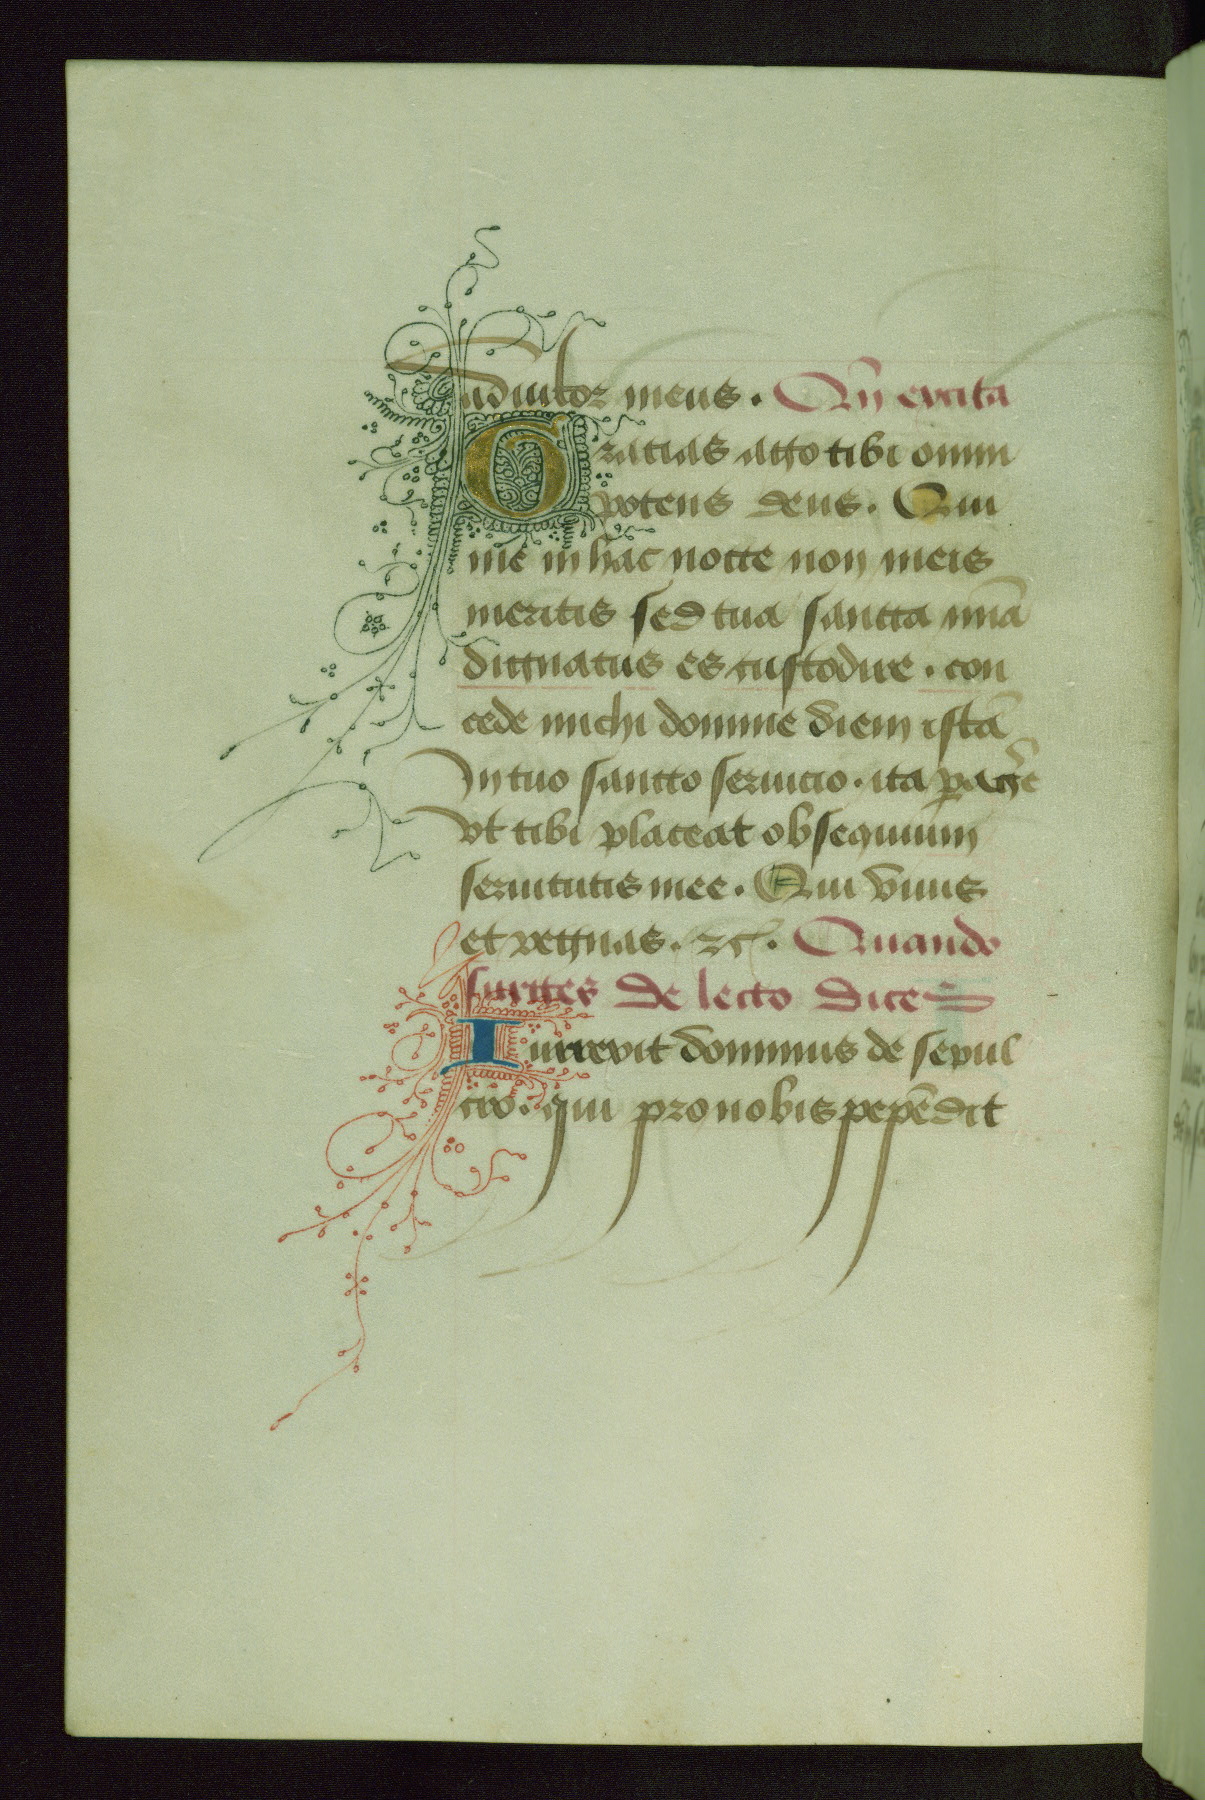 adiutor meus. Qñ excita
Gratias ago tibi omni
potens deus. Qui
me in hac nocte non meis
meritis sed tua sancta mĩa
dignatus es custodire. con
cede michi domine diem istã
In tuo sancto seruicio. ita pager̃e
vt tibi placeat obsequium
seruitutis mee. Qui viuis
et regnas. ⁊c̃. Quando
surges de lecto dices
Iurrexit dominus de sepul
cro. qui pro nobis pepẽdit